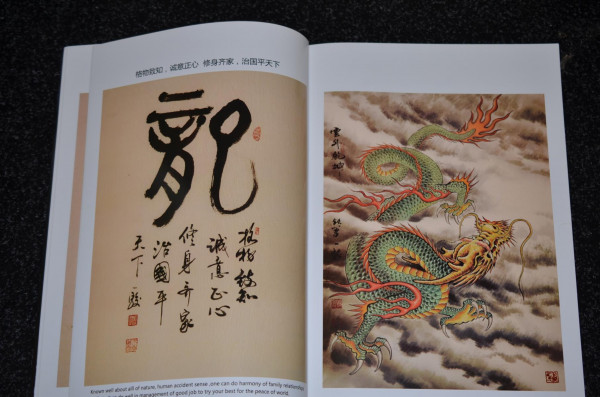 格物致知，诚意正心 修身齐家，治国平天下
龍
格物致知
诚意正心
修身齐家
治國平
天下
Known well about alll of nature, human accident sense ,one can do harmony of family
in management of good job to try your best for the peace of world.